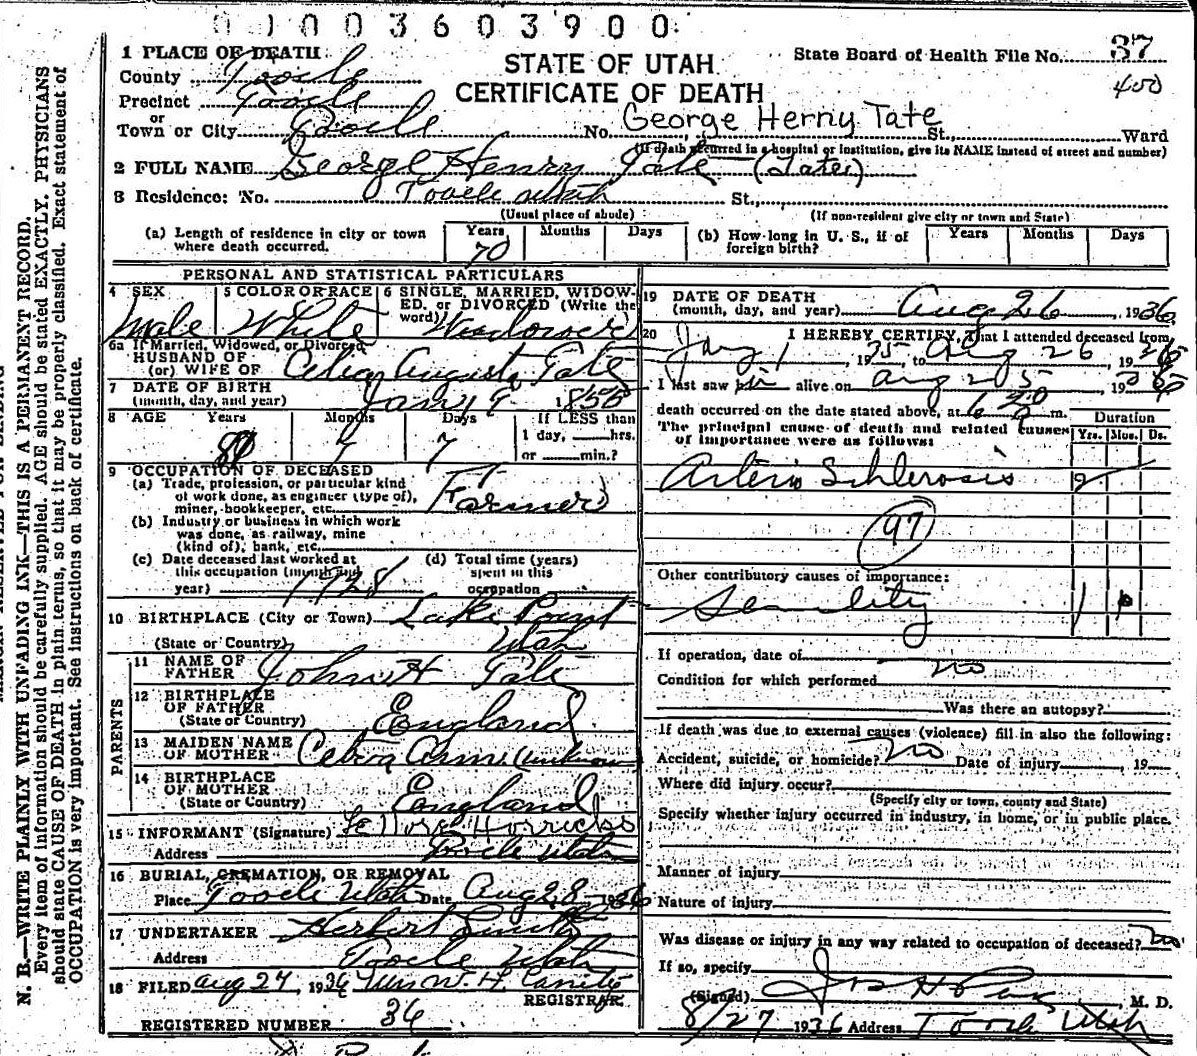 01003603900
1 PLACE OF DEATH
STATE OF UTAH
CERTIFICATE OF DEATH
State Board of Health File No. 37
400
County Tooele
Precinct Tooele
or
Town or City Tooele No. George Henry Tate St., Ward
(If death occurred in a hospital or institution, give its NAME instead of street and number)
2 FULL NAME George Henry Tate (Tate)
3 Residence: No. Tooele Utah St.,
(Usual place of abode) (If non-resident give city or town and State)
(a) Length of residence in city or town where death occurred. Years 70 Months Days
(b) How long in U. S., if of foreign birth? Years Months Days
PERSONAL AND STATISTICAL PARTICULARS
4 SEX Male
5 COLOR OR RACE White
6 SINGLE, MARRIED, WIDOWED, or DIVORCED (Write the word) Widowed
6a If Married, Widowed, or Divorced
HUSBAND OF
(or) WIFE OF Augusta Tate
7 DATE OF BIRTH
(month, day, and year) Jan 19 1855
8 AGE Years Months Days 7
If LESS than
1 day, hrs.
or min.?
9 OCCUPATION OF DECEASED
(a) Trade, profession, or particular kind
of work done, as engineer (type of),
miner, bookkeeper, etc. Farmer
(b) Industry or business in which work
was done, as railway, mine
(kind of), bank, etc.
(c) Date deceased last worked at
this occupation (month and
year) 1928
(d) Total time (years)
spent in this
occupation
10 BIRTHPLACE (City or Town) Lake Point
(State or Country) Utah
PARENTS
11 NAME OF
FATHER John H Tate
12 BIRTHPLACE
OF FATHER
(State or Country) England
13 MAIDEN NAME
OF MOTHER Ann (unknown)
14 BIRTHPLACE
OF MOTHER
(State or Country) England
15 INFORMANT (Signature) Horricks
Address Tooele Utah
16 BURIAL, CREMATION, OR REMOVAL
Place Tooele Utah Date Aug 28 1936
17 UNDERTAKER Herbert Smith
Address Tooele Utah
18 FILED Aug 27, 1936 Mrs W. H.
REGISTRAR
REGISTERED NUMBER 36
19 DATE OF DEATH
(month, day, and year) Aug 26, 1936
20 I HEREBY CERTIFY, That I attended deceased from
Jany 1, 1935, to Aug 26, 1936
I last saw him alive on Aug 25, 1936
death occurred on the date stated above, at m.
The principal cause of death and related causes
of importance were as follows:
Duration
Yrs. Mos. Ds.
Arterio Schlerosis 2
97
Other contributory causes of importance:
Seanility 1
If operation, date of no
Condition for which performed
Was there an autopsy?
If death was due to external causes (violence) fill in also the following:
Accident, suicide, or homicide? no Date of injury, 19
Where did injury occur?
(Specify city or town, county and State)
Specify whether injury occurred in industry, in home, or in public place.
Manner of injury
Nature of injury
Was disease or injury in any way related to occupation of deceased? no
If so, specify
(Signed), M. D.
8/27 1936 Address Tooele Utah
N. B.—WRITE PLAINLY WITH UNFADING INK—THIS IS A PERMANENT RECORD.
Every item of information should be carefully supplied. AGE should be stated EXACTLY. PHYSICIANS
should state CAUSE OF DEATH in plain terms, so that it may be properly classified. Exact statement of
OCCUPATION is very important. See instructions on back of certificate.